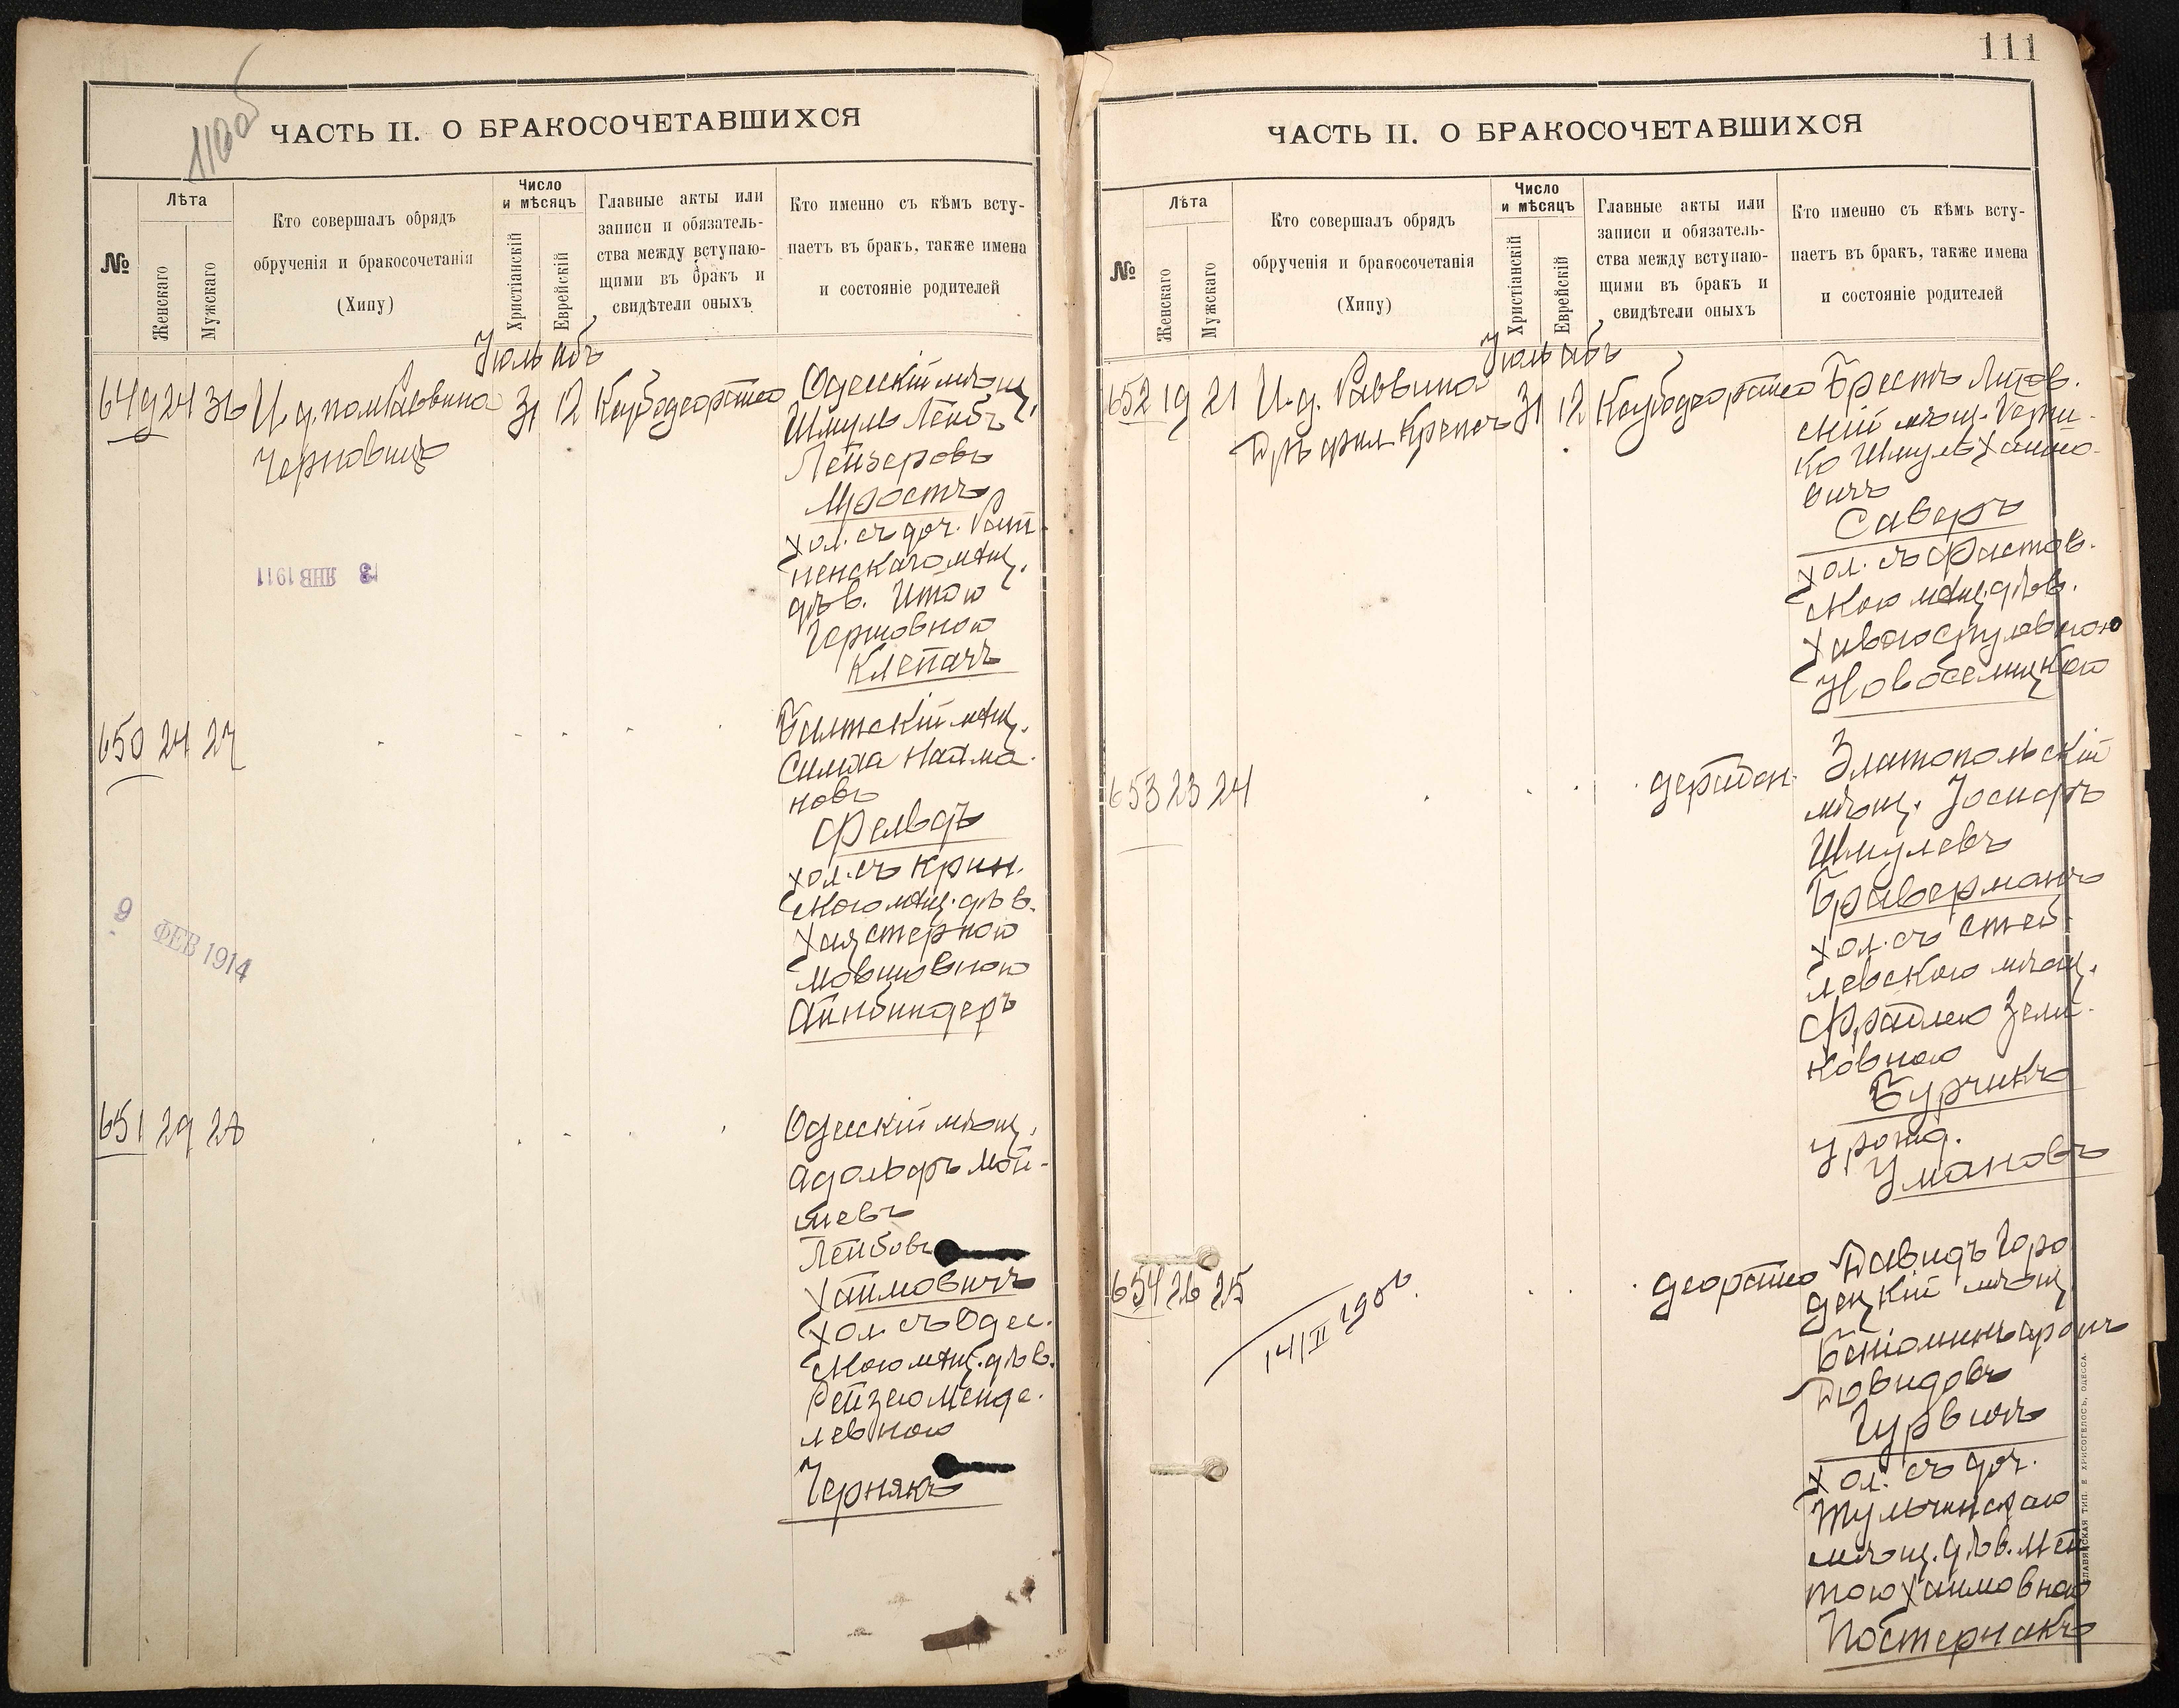 110об
ЧАСТЬ II. О БРАКОСОЧЕТАВШИХСЯ
№
Лѣта
Женскаго
Мужскаго
Кто совершалъ обрядъ
обрученія и бракосочетанія
(Хипу)
Число
и мѣсяцъ
Христіанскій
Еврейскій
Главные акты или
записи и обязатель-
ства между вступаю-
щими въ бракъ и
свидѣтели оныхъ
Кто именно съ кѣмъ всту-
паетъ въ бракъ, также имена
и состояніе родителей
Іюль абъ
649 24 36 И. д. пом. Раввина
Черновицъ
31 12
Одесскій мѣщ.
Шмуль Лейбъ
Лейзеровъ
хол. съ доч.
пенскаго мѣщ.
дѣв. Итою
Гершовною
Клепачъ
3 ЯНВ 1911
650 24 27
Балтскій мѣщ.
Симха Найма-
новъ
Фельдъ
хол. съ Крин.
скою мѣщ. дѣв.
Хая стерною
Мовшовною
Айнбиндеръ
9 ФЕВ 1914
651 29 28
Одесскій мѣщ.
Адольфъ Мой-
шевъ
Лейбовъ
Хаимовичъ
хол. съ Одес.
скою мѣщ. дѣв.
Рейзею Менде-
левною
Чернякъ
111
ЧАСТЬ II. О БРАКОСОЧЕТАВШИХСЯ
№
Лѣта
Женскаго
Мужскаго
Кто совершалъ обрядъ
обрученія и бракосочетанія
(Хипу)
Число
и мѣсяцъ
Христіанскій
Еврейскій
Главные акты или
записи и обязатель-
ства между вступаю-
щими въ бракъ и
свидѣтели оныхъ
Кто именно съ кѣмъ всту-
паетъ въ бракъ, также имена
и состояніе родителей
Іюль абъ
652 19 21 И. д. Раввина
Д-ръ фил. Крепсъ
31 12
Брестъ Литов.
скій мѣщ.
ко Шмуль Хаимо-
вичъ
Саверъ
хол. съ Фастов.
скою мѣщ. дѣв.
Хавою Срулевною
Новоселицкою
653 23 24
Златопольскій
мѣщ. Іосифъ
Шмулевъ
Браверманъ
хол. съ
левскою мѣщ.
Фрадлею Зели-
ковною
Бурчикъ
урожд.
Умановъ
654 26 25
14/II 1906
Давидъ Горо
децкій мѣщ.
Беніоминъ Аронъ
Довидовъ
Гурвичъ
хол. съ доч.
Тульчинскаго
мѣщ. дѣв. Мей
тою Хаимовною
Постернакъ
СЛАВЯНСКАЯ ТИП. Е. ХРИСОГЕЛОСЪ, ОДЕССА.